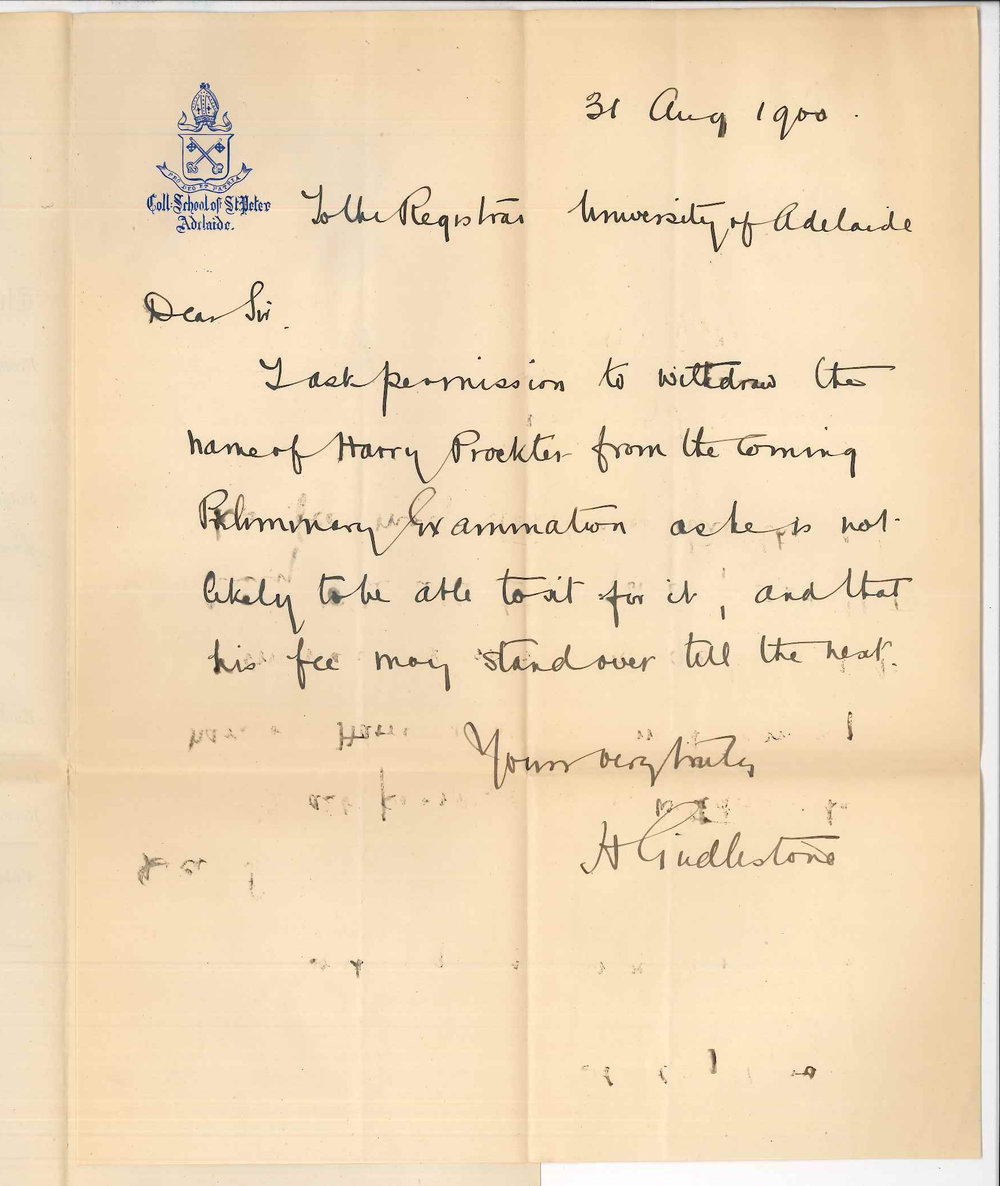 31 Aug 1900.
PRO DEO ET PATRIA
Coll: School of St. Peter
Adelaide.
To the Registrar University of Adelaide
Dear Sir.
I ask permission to withdraw the
name of Harry Prockter from the coming
Preliminary Examination as he is not
likely to be able to sit for it, and that
his fee may stand over till the next.
Yours very truly
H Girdlestone